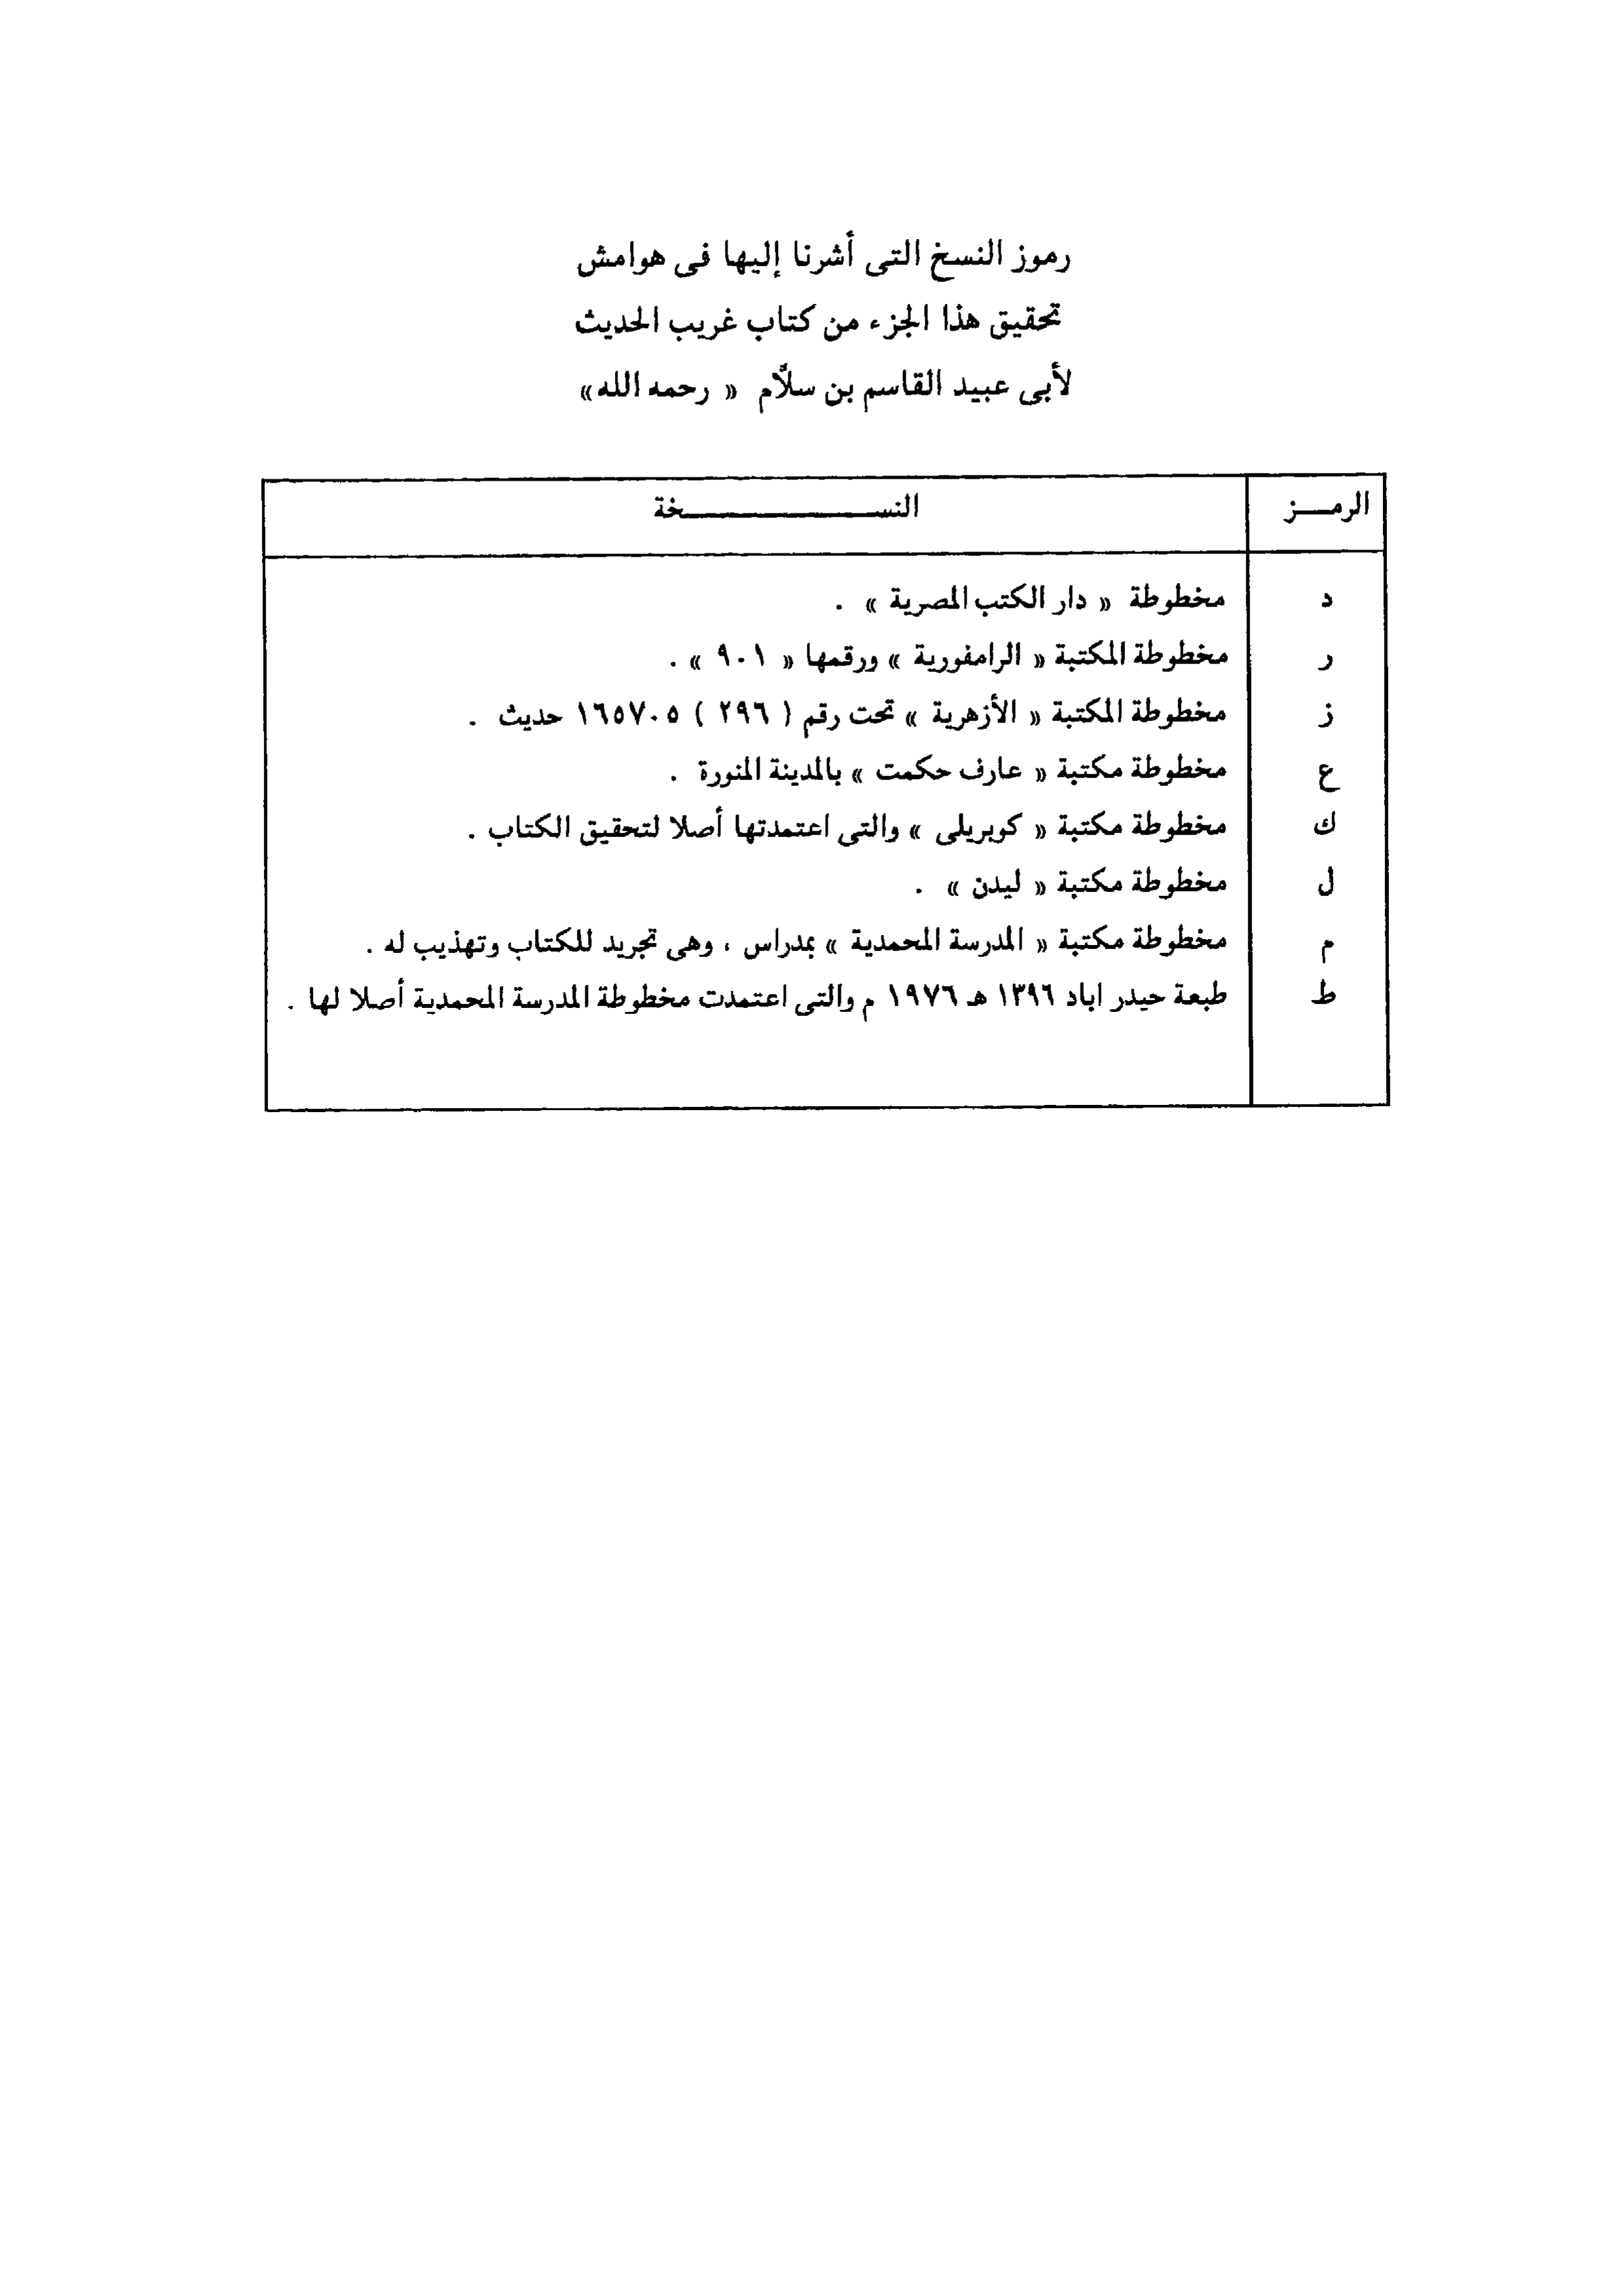 رموز النسخ التى أشرنا إليها فى هوامش
تحقيق هذا الجزء من كتاب غريب الحديث
لأبى عبيد القاسم بن سلاَّم « رحمه الله»
الرمـــز النســـــــــــــــخة
د مخطوطة « دار الكتب المصرية » .
ر مخطوطة المكتبة « الرامفورية » ورقمها « ٩٠١ » .
ز مخطوطة المكتبة « الأزهرية » تحت رقم ( ٢٩٦ ) ١٦٥٧٠٥ حديث .
ع مخطوطة مكتبة « عارف حكمت » بالمدينة المنورة .
ك مخطوطة مكتبة « كوبريلى » والتى اعتمدتها أصلا لتحقيق الكتاب .
ل مخطوطة مكتبة « ليدن » .
م مخطوطة مكتبة « المدرسة المحمدية » بمدراس ، وهى تجريد للكتاب وتهذيب له .
ط طبعة حيدر اباد ١٣٩٦ هـ ١٩٧٦ م والتى اعتمدت مخطوطة المدرسة المحمدية أصلا لها .